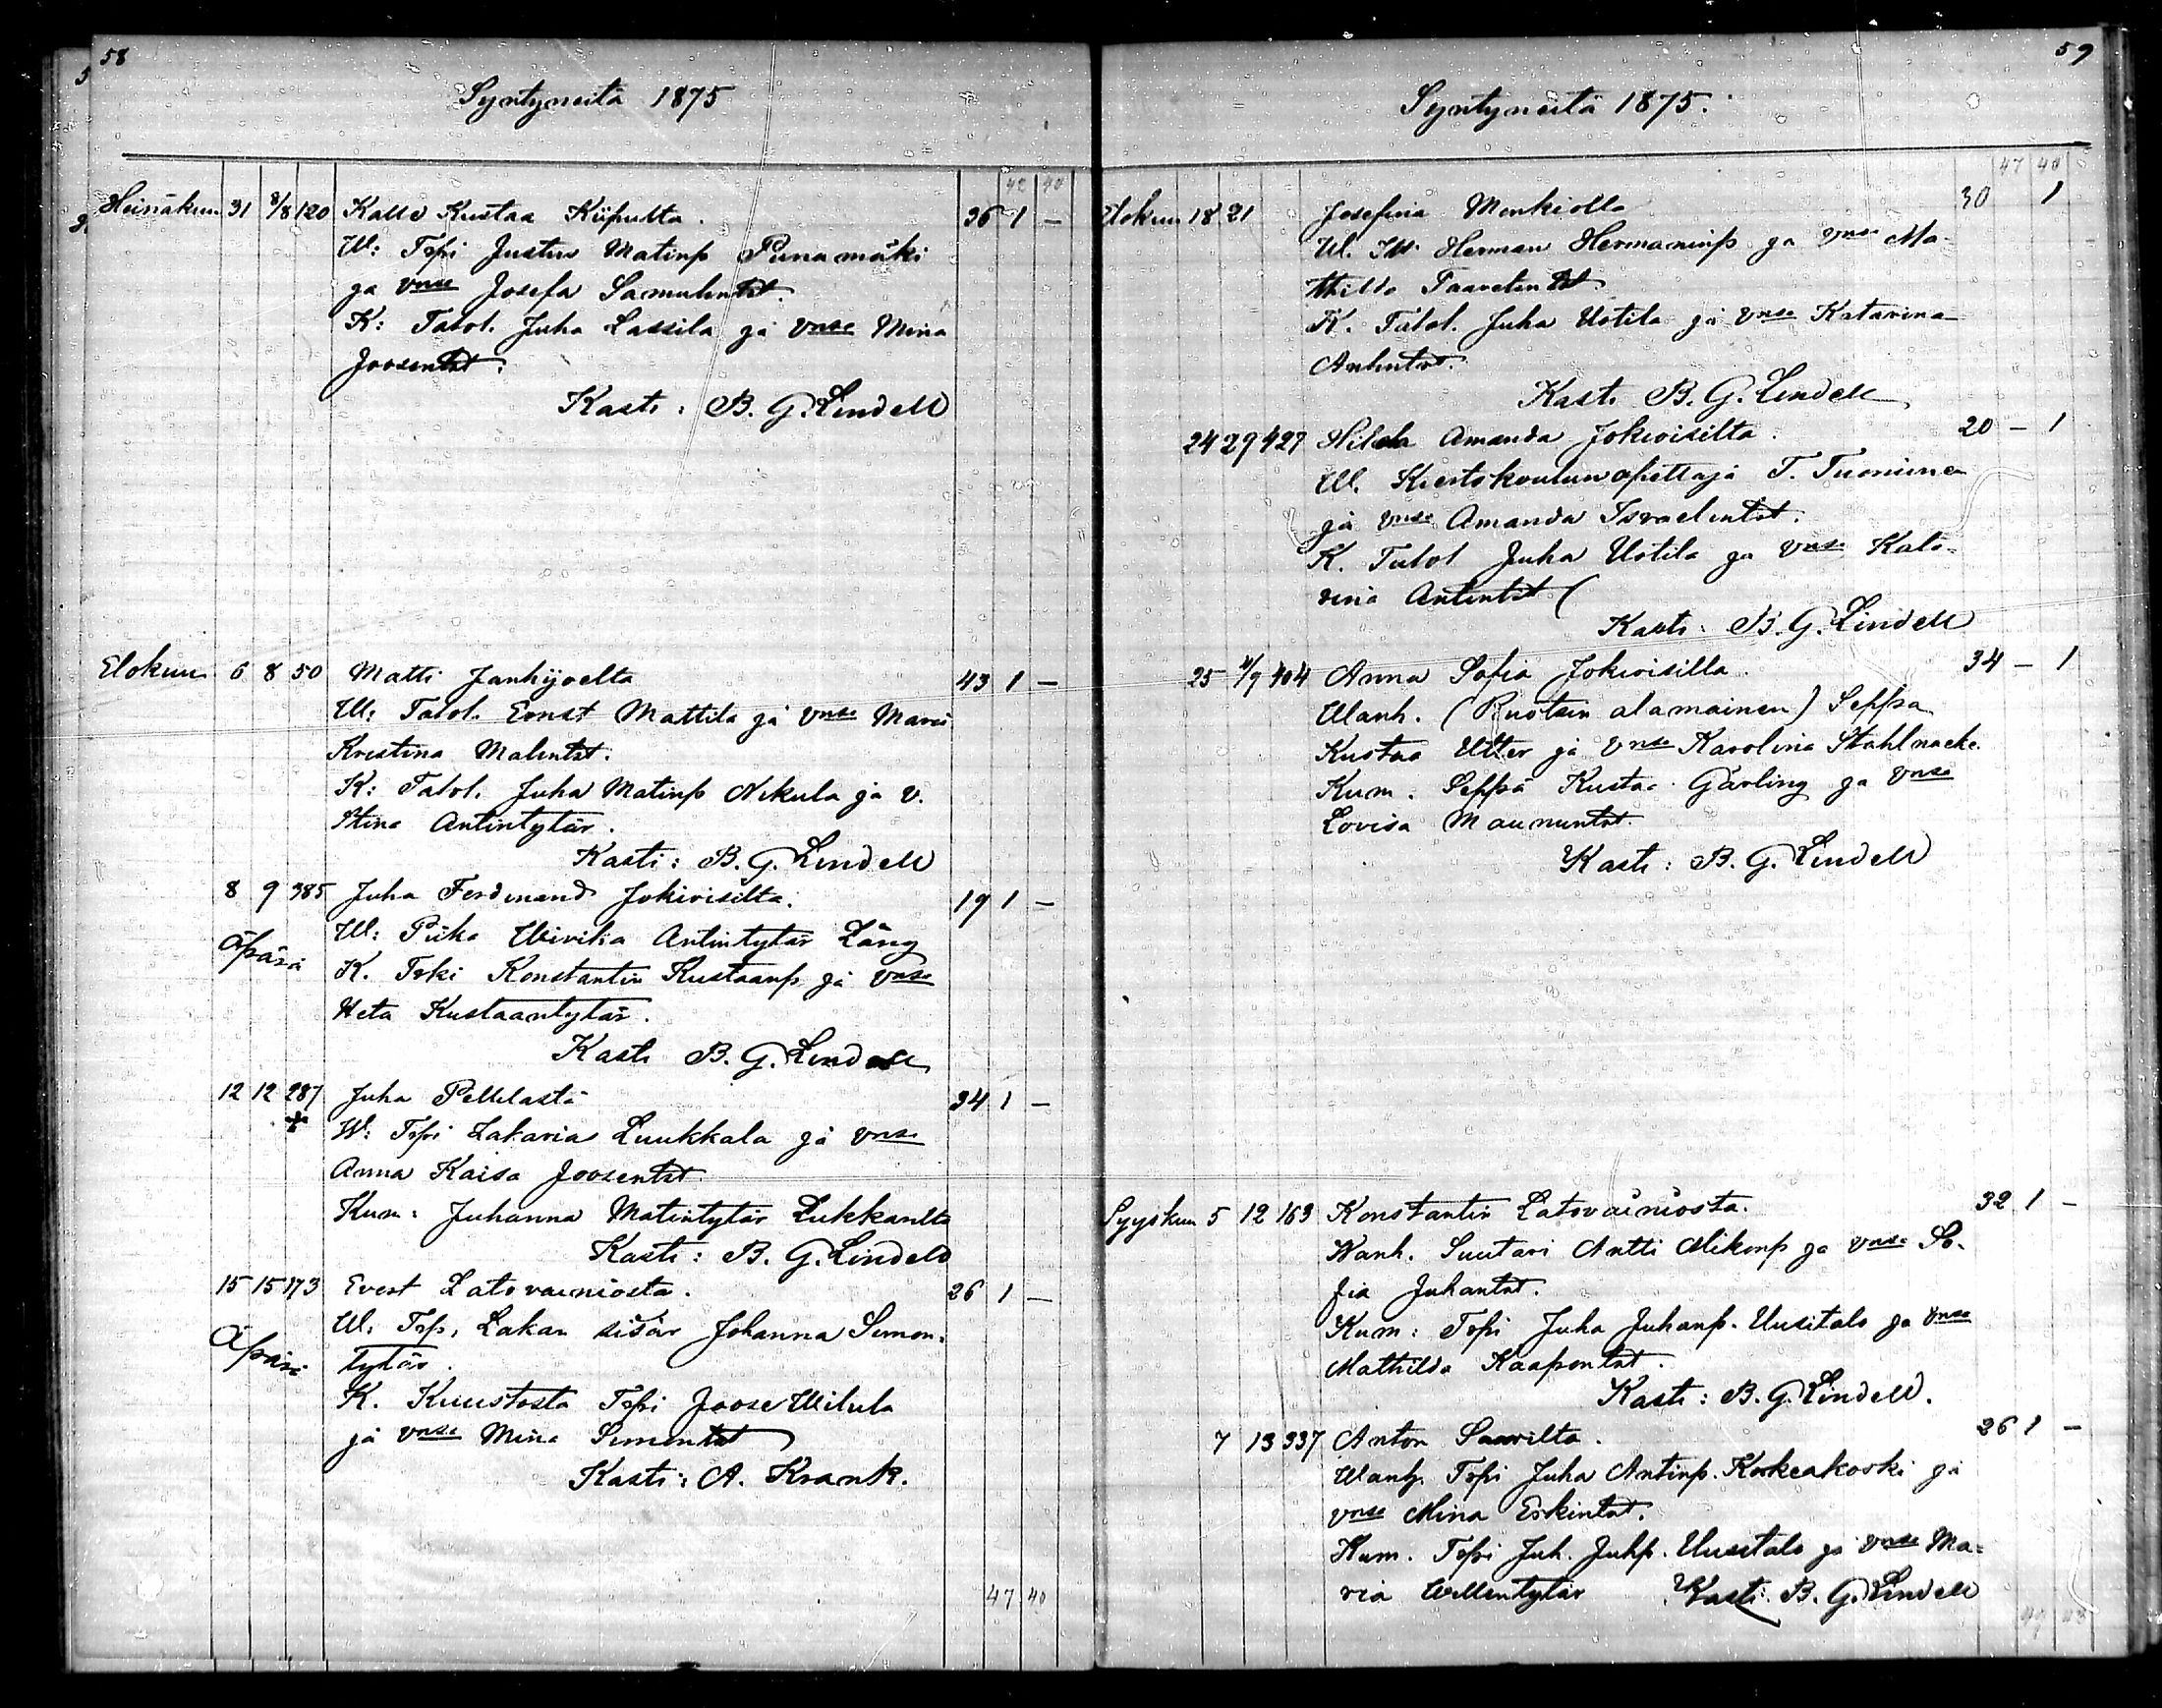 58
Syntyneitä 1875
42 40
Heinäkuu 31 8/8 120 Kalle Kustaa Kiipulta. 36 1 –
W: Tspi Justus Matinp Punamäki
ja vnsa Josefa Samulintät.
K: Talol. Juha Lassila ja vnsa Mina
Joosentät.
Kasti: B. G. Lindell
Elokuu 6 8 50 Matti Janhijoelta 43 1 –
W: Talol. Ernst Mattila ja vnsa Maria
Kristina Malintät.
K: Talol. Juha Matinp Nikula ja v.
Stina Antintytär.
Kasti: B. G. Lindell
8 9 385 Juha Ferdinand Jokivisilta. 19 1 –
W: Piika Wivika Antintytär Läng
Äpärä
K. Tski Konstantin Kustaanp. ja vnsa
Heta Kustaantytär.
Kasti B. G. Lindell
12 12 287 Juha Pellilastä 34 1 –
W: Tspi Sakaria Luukkala ja vnsa
Anna Kaisa Joosentät.
Kum: Juhanna Matintytär Lukkanlta
Kasti: B. G. Lindell
15 15 173 Evert Latovainiosta. 26 1 –
W: Tsp. Sakar. sisär Johanna Simon-
Äpärä tytär.
K. Kuustosta Tspi Joose Wilula
ja vnsa Mina Simontät
Kasti: A. Krank.
47 40
59
Syntyneitä 1875.
47 40
Elokuu 18 21 Josefina Monkiolla 30 1
W. Herman Hermaninp ja vnsa Ma-
thilda Taavetintät
K. Talol. Juha Uotila ja vnsa Katarina
Antintät.
Kasti B. G. Lindell
24 29 427 Hilda Amanda Jokivisilta. 20 – 1
W. Kiertokoulunopettaja T. Tuominen
ja vnsa Amanda Israelintät.
K. Talol Juha Uotila ja vnsa Kata-
rina Antintät
Kasti: B. G. Lindell
25 4/9 404 Anna Sofia Jokivisilla. 34 – 1
Wanh. (Ruotsin alamainen) Seppä
Kustaa Utter ja vnsa Karolina Stahlnacke.
Kum. Seppä Kustaa Gärling ja vnsa
Lovisa Maununtät.
Kasti: B. G. Lindell
Syyskuu 5 12 163 Konstantin Latovainiosta. 32 1 –
Wanh. Suutari Antti Mikonp ja vnsa So-
fia Juhantät.
Kum: Tspi Juha Juhanp. Uusitalo ja vnsa
Mathilda Kaapontät.
Kasti: B. G. Lindell.
7 13 337 Anton Saarilta. 26 1 –
Wanh. Tspi Juha Antinp. Korkeakoski ja
vnsa Mina Erkintät.
Kum. Tspi Juh. Juhp. Uusitalo ja vnsa Ma-
ria Willentytär Kasti: B. G. Lindell
49 43